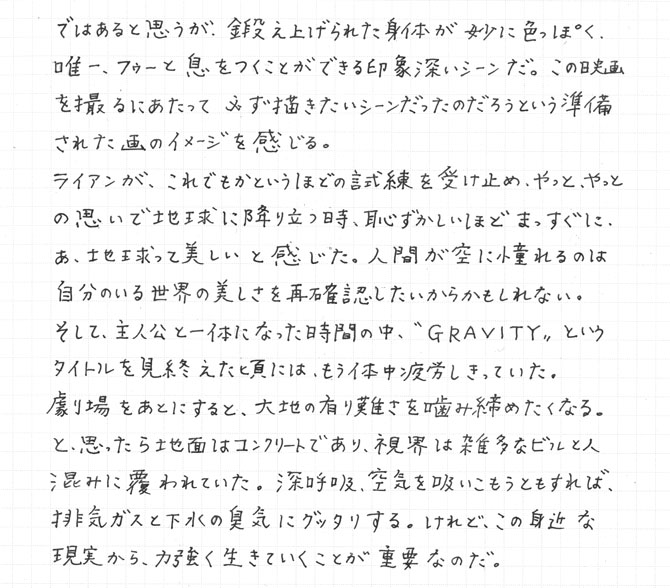 ではあると思うが、鍛え上げられた身体が妙に色っぽく、
唯一、フゥーと息をつくことができる印象深いシーンだ。この映画
を撮るにあたって必ず描きたいシーンだったのだろうという準備
された画のイメージを感じる。
ライアンが、これでもかというほどの試練を受け止め、やっと、やっと
の思いで地球に降り立つ時、恥ずかしいほどまっすぐに、
あ、地球って美しいと感じた。人間が空に憧れるのは
自分のいる世界の美しさを再確認したいからかもしれない。
そして、主人公と一体になった時間の中、〝GRAVITY〟という
タイトルを見終えた頃には、もう体中疲労しきっていた。
劇場をあとにすると、大地の有り難さを噛み締めたくなる。
と、思ったら地面はコンクリートであり、視界は雑多なビルと人
混みに覆われていた。深呼吸、空気を吸いこもうともすれば、
排気ガスと下水の臭気にグッタリする。けれど、この身近な
現実から、力強く生きていくことが重要なのだ。